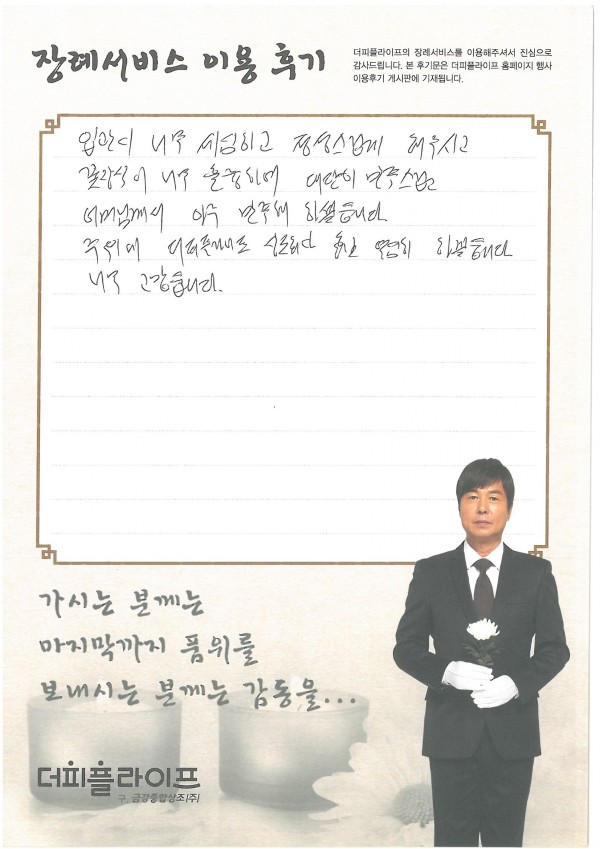 장례서비스 이용 후기
더피플라이프의 장례서비스를 이용해주셔서 진심으로
감사드립니다. 본 후기문은 더피플라이프 홈페이지 행사
이용후기 게시판에 기재됩니다.
입관이 너무 세심하고 정성스럽게 해주시고
꽃장식이 너무 훌륭하여 대단히 만족스럽고
어머님께서 아주 만족해 하셨습니다.
주위에 더피플라이프 상조회사
너무 고맙습니다.
가시는 분께는
마지막까지 품위를
보내시는 분께는 감동을...
더피플라이프
구. 금강종합상조(주)